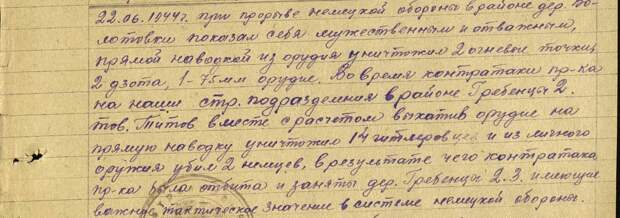 22.06.1944г. при прорыве немецкой обороны в районе дер. По-
лотовки показал себя мужественным и отважным,
прямой наводкой из орудия уничтожил 2 огневые точки,
2 дзота, 1-75мм орудие. Во время контратаки пр-ка
на наши стр. подразделения в районе Гребенцы 2.
тов. Титов вместе с расчетом выкатив орудие на
прямую наводку уничтожил 14 гитлеровцев и из личного
оружия убил 2 немцев, в результате чего контратака
пр-ка была отбита и заняты дер. Гребенцы 2.3. имеющие
важное тактическое значение в системе немецкой обороны.